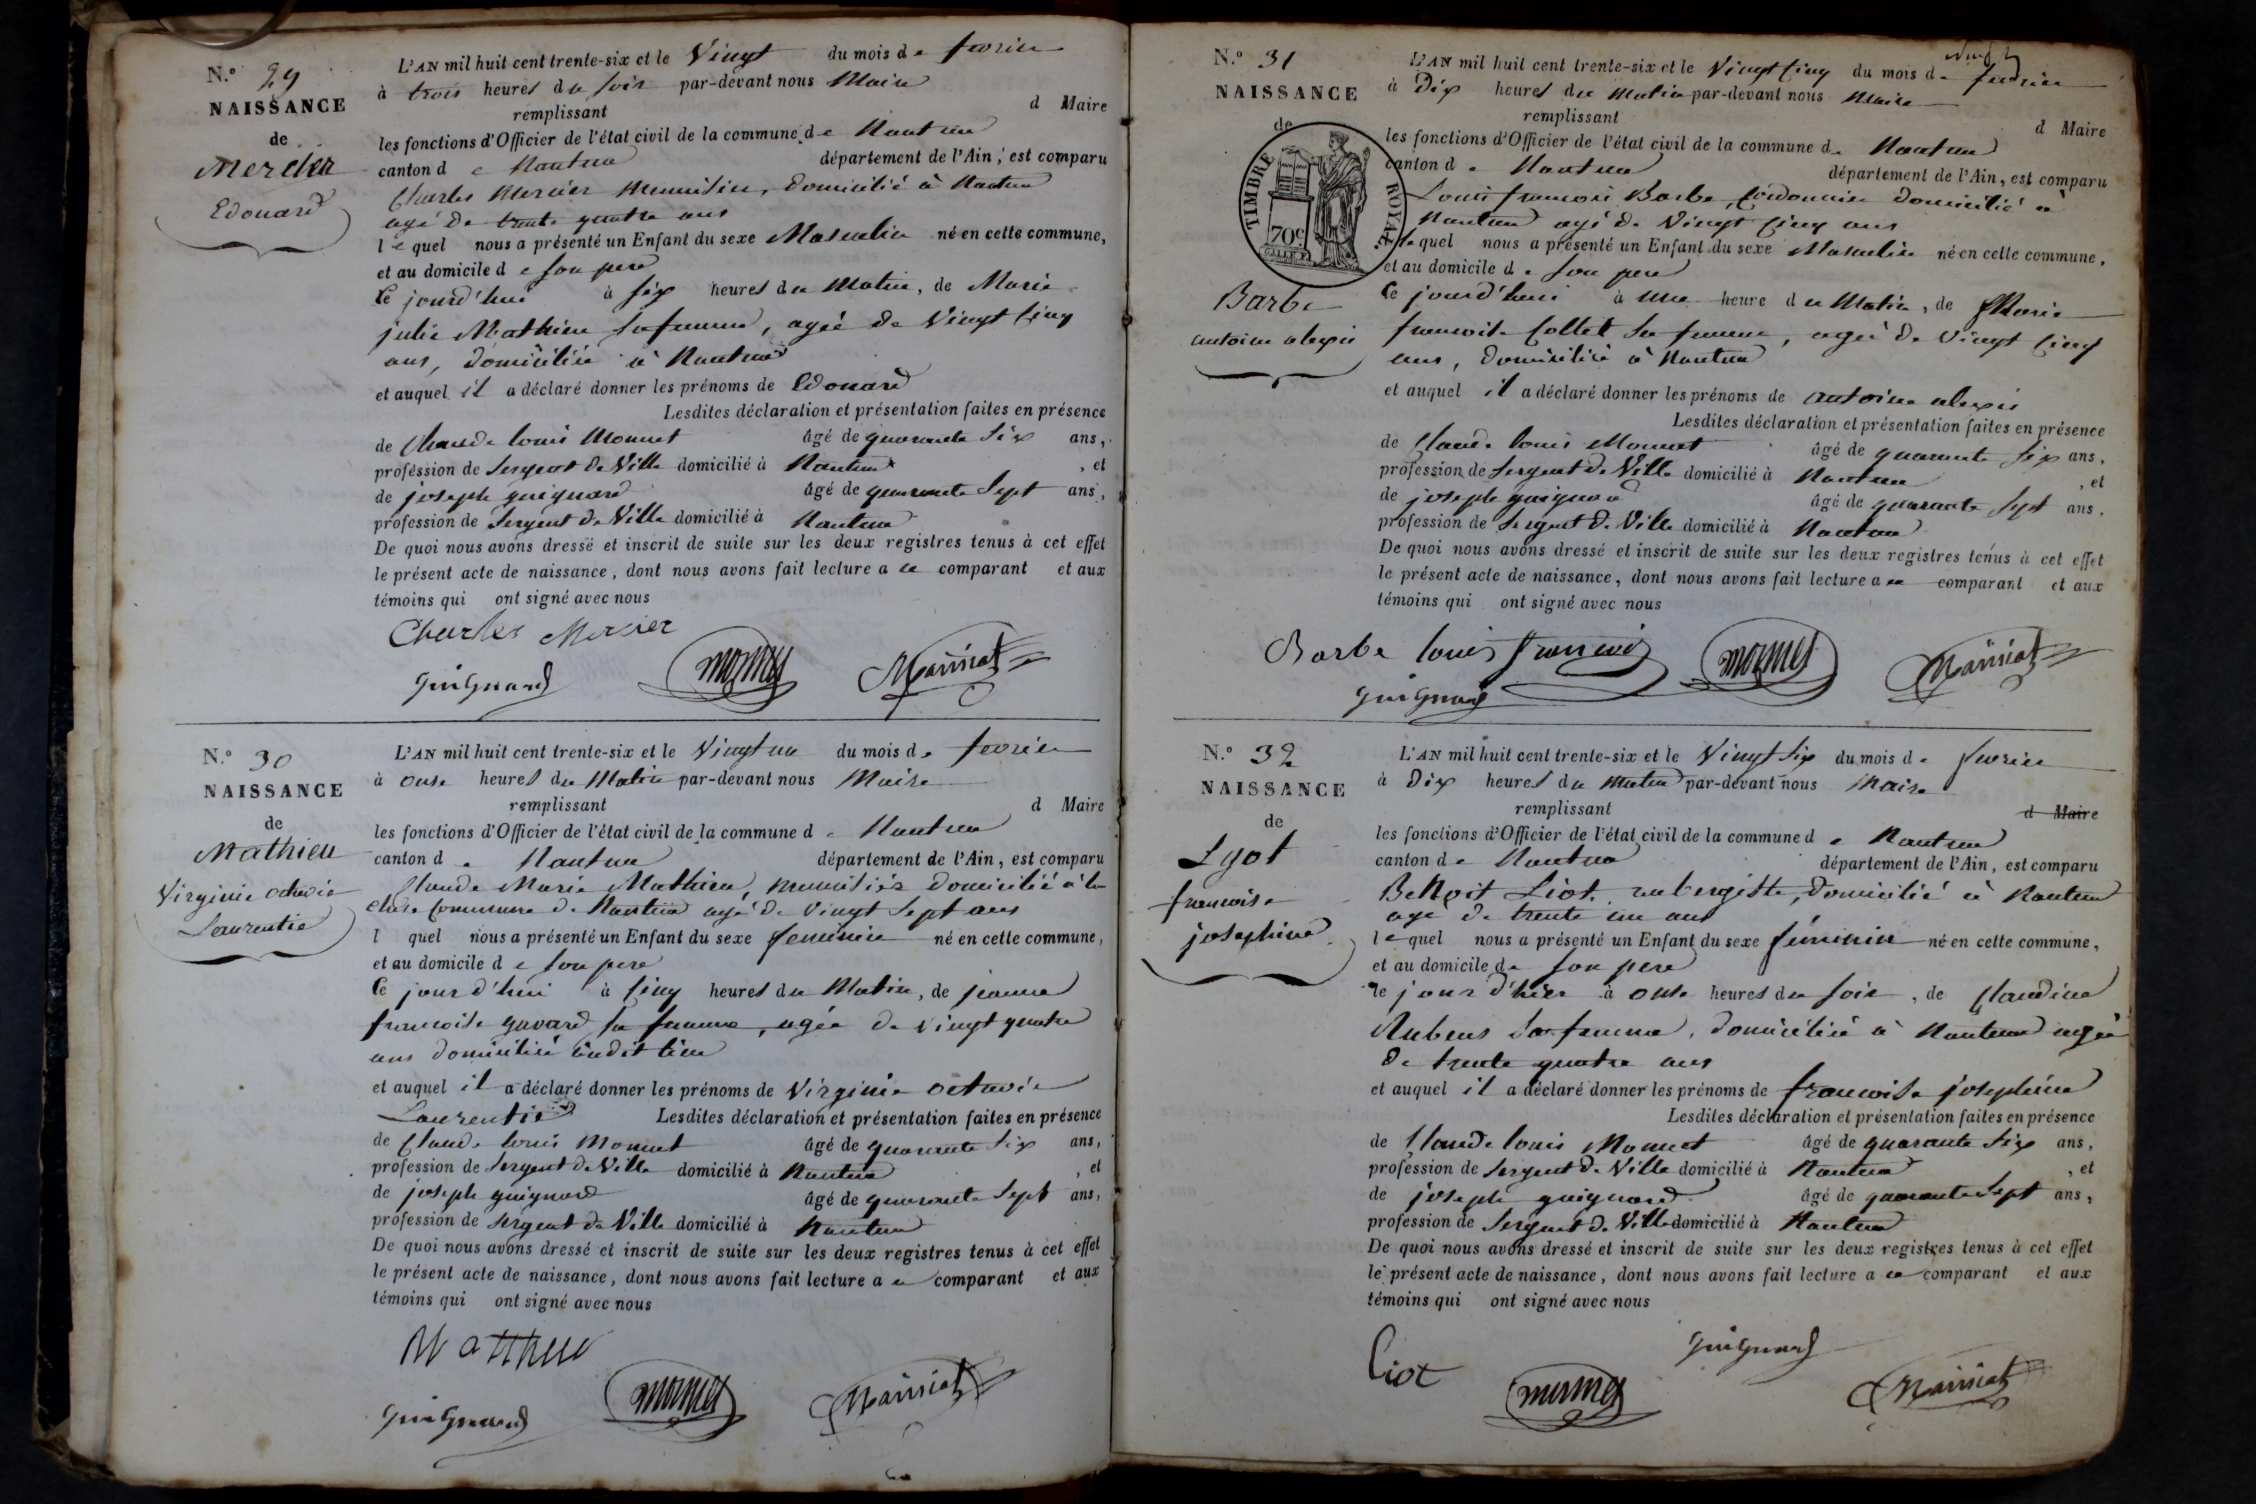 N.° 29
NAISSANCE
de
Mercier
Edouard
L'AN mil huit cent trente-six et le Vingt du mois de fevrier
à trois heures du soir par-devant nous Maire
remplissant d Maire
les fonctions d'Officier de l'état civil de la commune de Nantua
canton de Nantua département de l'Ain, est comparu
Charles Mercier menuisier, domicilié à Nantua
agé de trente quatre ans
lequel nous a présenté un Enfant du sexe Masculin né en cette commune,
et au domicile de son pere
Ce jourd'hui à six heures du Matin, de Marie
julie Mathieu sa femme, agée de Vingt Cinq
ans, domiciliée à Nantua
et auquel il a déclaré donner les prénoms de Edouard
Lesdites déclaration et présentation faites en présence
de Claude louis Monnet âgé de quarante six ans,
profession de Sergent de Ville domicilié à Nantua, et
de joseph guignard âgé de quarante sept ans,
profession de Sergent de Ville domicilié à Nantua
De quoi nous avons dressé et inscrit de suite sur les deux registres tenus à cet effet
le présent acte de naissance, dont nous avons fait lecture a ce comparant et aux
témoins qui ont signé avec nous
Charles Mercier
Guignard monnet Mainiat
N.° 30
NAISSANCE
de
Mathieu
Virginie octavie
Laurentie
L'AN mil huit cent trente-six et le Vingt un du mois de fevrier
à onse heures du Matin par-devant nous Maire
remplissant d Maire
les fonctions d'Officier de l'état civil de la commune de Nantua
canton de Nantua département de l'Ain, est comparu
Claude Marie Mathieu, menuisier domicilié à la
cluse Commune de Nantua agé de Vingt sept ans
l quel nous a présenté un Enfant du sexe feminin né en cette commune,
et au domicile de son pere
Ce jour d'hui à cinq heures du Matin, de jeanne
francoise gavard sa femme, agée de vingt quatre
ans domiciliée audit lieu
et auquel il a déclaré donner les prénoms de Virginie octavie
Laurentie Lesdites déclaration et présentation faites en présence
de Claude louis Monnet âgé de quarante six ans,
profession de Sergent de Ville domicilié à Nantua, et
de joseph guignard âgé de quarante sept ans,
profession de Sergent de Ville domicilié à Nantua
De quoi nous avons dressé et inscrit de suite sur les deux registres tenus à cet effet
le présent acte de naissance, dont nous avons fait lecture a ce comparant et aux
témoins qui ont signé avec nous
Matthieu
Guignard monnet Mainiat
N.° 31
NAISSANCE
de
TIMBRE ROYAL.
70c
Barbe
antoine alexis
L'AN mil huit cent trente-six et le Vingt Cinq du mois de fevrier
à Dix heures du matin par-devant nous Maire
remplissant d Maire
les fonctions d'Officier de l'état civil de la commune de Nantua
canton de Nantua département de l'Ain, est comparu
Louis francois Barbe, Cordonnier domicilié à
Nantua agé de Vingt Cinq ans
lequel nous a présenté un Enfant du sexe Masculin né en cette commune,
et au domicile de son pere
Ce jourd'hui à une heure du Matin, de Marie
francoise Collet sa femme, agée de Vingt Cinq
ans, domiciliée à Nantua
et auquel il a déclaré donner les prénoms de antoine alexis
Lesdites déclaration et présentation faites en présence
de Claude louis Monnet âgé de quarante six ans,
profession de Sergent de Ville domicilié à Nantua, et
de joseph guignard âgé de quarante sept ans.
profession de Sergent de Ville domicilié à Nantua
De quoi nous avons dressé et inscrit de suite sur les deux registres tenus à cet effet
le présent acte de naissance, dont nous avons fait lecture a ce comparant et aux
témoins qui ont signé avec nous
Barbe louis francois monnet Mainiat
Guignard
N.° 32
NAISSANCE
de
Lyot
francoise
josephine
L'AN mil huit cent trente-six et le Vingt six du mois de fevrier
à Dix heures du matin par-devant nous Maire
remplissant d Maire
les fonctions d'Officier de l'état civil de la commune de Nantua
canton de Nantua département de l'Ain, est comparu
Benoit Liot, aubergiste, domicilié à Nantua
agé de trente un ans
lequel nous a présenté un Enfant du sexe féminin né en cette commune,
et au domicile de son pere
le jour d'hier à onse heures du soir, de Claudine
Rubens sa femme, domiciliée à Nantua agée
de trente quatre ans
et auquel il a déclaré donner les prénoms de francoise josephine
Lesdites déclaration et présentation faites en présence
de Claude louis Monnet âgé de quarante six ans,
profession de Sergent de Ville domicilié à Nantua, et
de joseph guignard âgé de quarante sept ans,
profession de Sergent de Ville domicilié à Nantua
De quoi nous avons dressé et inscrit de suite sur les deux registres tenus à cet effet
le présent acte de naissance, dont nous avons fait lecture a ce comparant et aux
témoins qui ont signé avec nous
Liot Guignard
monnet Mainiat